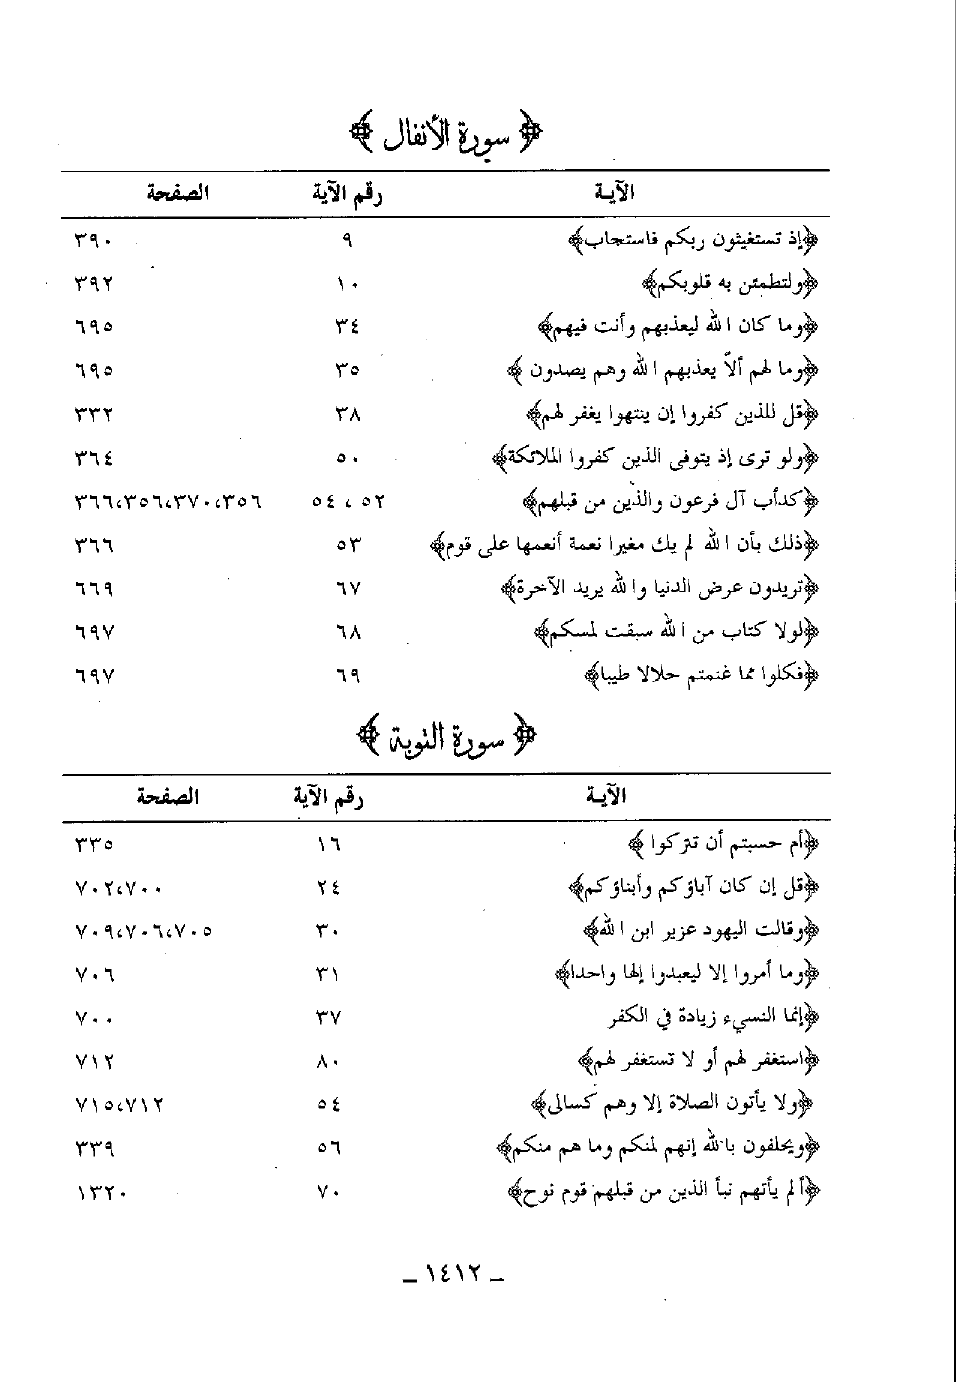 ﴿ سورة الأنفال ﴾
الآيـة رقم الآية الصفحة
﴿إذ تستغيثون ربكم فاستجاب﴾ ٩ ٣٩٠
﴿ولتطمئن به قلوبكم﴾ ١٠ ٣٩٢
﴿وما كان الله ليعذبهم وأنت فيهم﴾ ٣٤ ٦٩٥
﴿وما لهم ألاّ يعذبهم الله وهم يصدون ﴾ ٣٥ ٦٩٥
﴿قل للذين كفروا إن ينتهوا يغفر لهم﴾ ٣٨ ٣٣٢
﴿ولو ترى إذ يتوفى الذين كفروا الملائكة﴾ ٥٠ ٣٦٤
﴿كدأب آل فرعون والذين من قبلهم﴾ ٥٢ ، ٥٤ ٣٥٦،٣٧٠،٣٥٦،٣٦٦
﴿ذلك بأن الله لم يك مغيرا نعمة أنعمها على قوم﴾ ٥٣ ٣٦٦
﴿تريدون عرض الدنيا والله يريد الآخرة﴾ ٦٧ ٦٦٩
﴿لولا كتاب من الله سبقت لمسكم﴾ ٦٨ ٦٩٧
﴿فكلوا مما غنمتم حلالا طيبا﴾ ٦٩ ٦٩٧
﴿ سورة التوبة ﴾
الآيـة رقم الآية الصفحة
﴿أم حسبتم أن تتركوا ﴾ ١٦ ٣٣٥
﴿قل إن كان آباؤكم وأبناؤكم﴾ ٢٤ ٧٠٠،٧٠٢
﴿وقالت اليهود عزير ابن الله﴾ ٣٠ ٧٠٥،٧٠٦،٧٠٩
﴿وما أمروا إلا ليعبدوا إلها واحدا﴾ ٣١ ٧٠٦
﴿إنما النسيء زيادة في الكفر ٣٧ ٧٠٠
﴿استغفر لهم أو لا تستغفر لهم﴾ ٨٠ ٧١٢
﴿ولا يأتون الصلاة إلا وهم كسالى﴾ ٥٤ ٧١٢،٧١٥
﴿ويحلفون بالله إنهم لمنكم وما هم منكم﴾ ٥٦ ٣٣٩
﴿ألم يأتهم نبأ الذين من قبلهم قوم نوح﴾ ٧٠ ١٣٢٠
ــ ١٤١٢ ــ